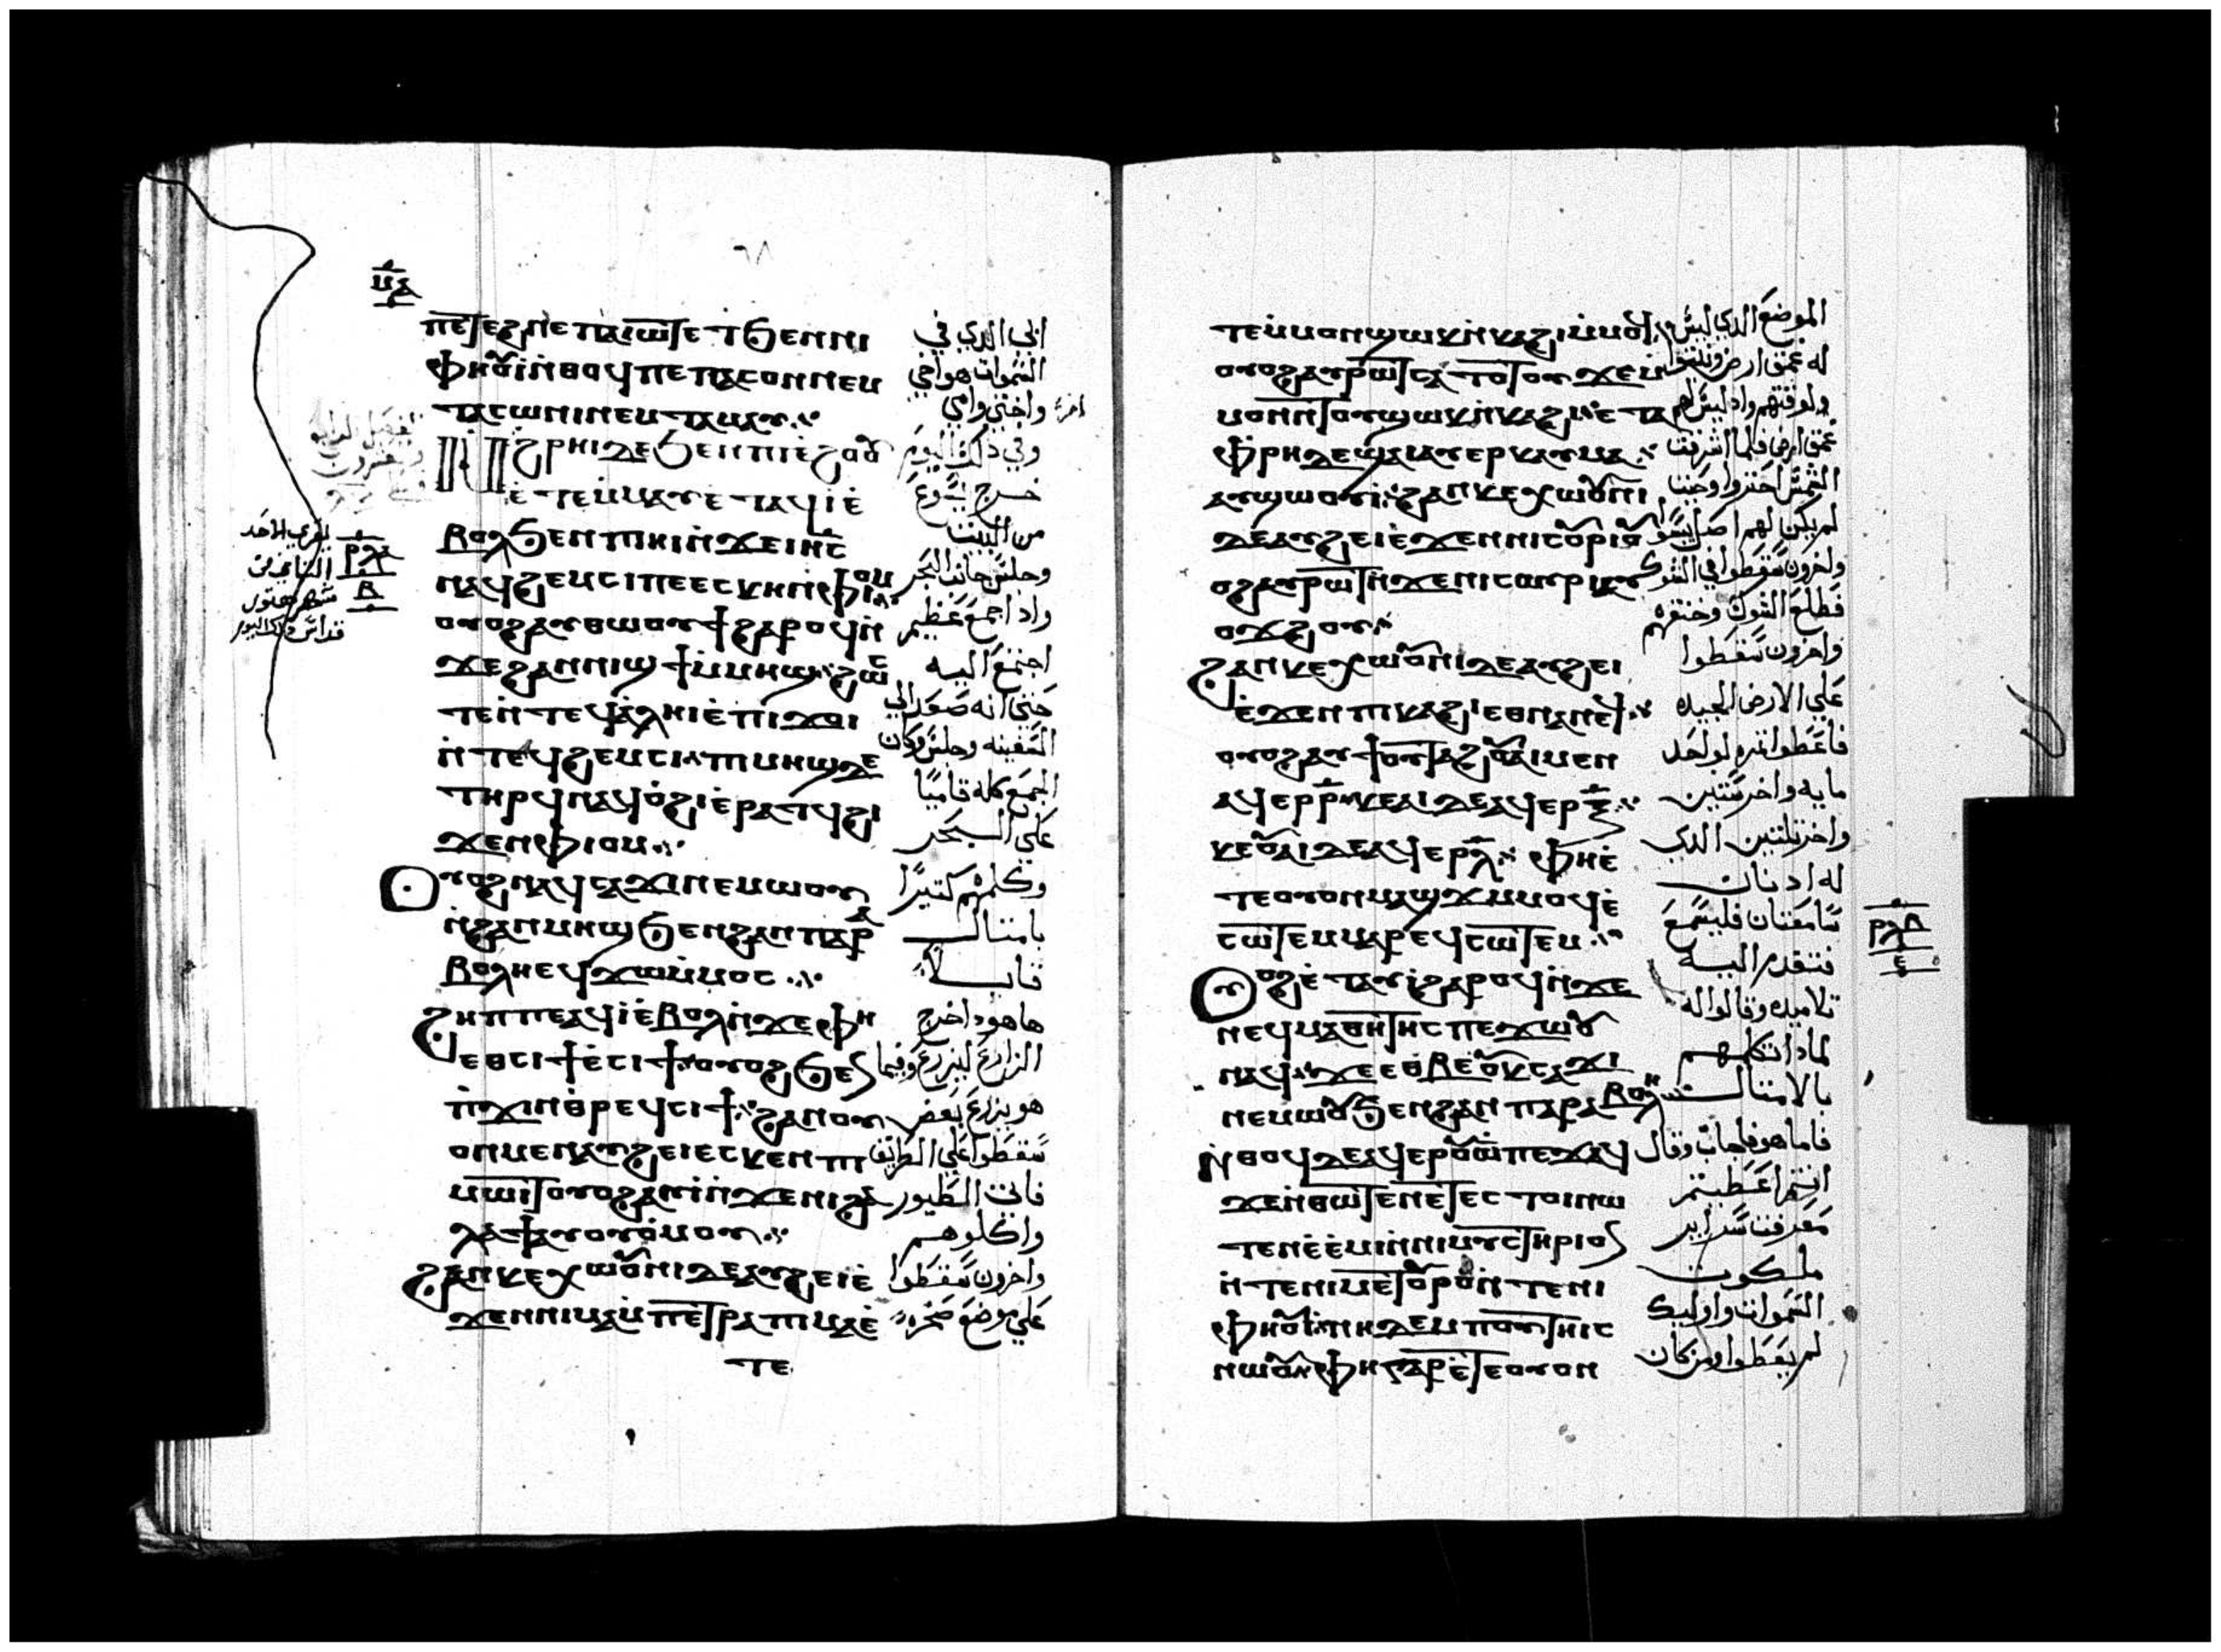 ⲙⲁ
ⲡⲉⲧⲉϩⲛⲉ ⲡⲁⲓⲱⲧ ⲉⲧϧⲉⲛⲛⲓ
ⲫⲏⲟⲩⲓ ⲛⲑⲟϥ ⲡⲉ ⲡⲁⲥⲟⲛ ⲛⲉⲙ
ⲧⲁⲥⲱⲛⲓ ⲛⲉⲙ ⲧⲁⲙⲁⲩ
ⲛϩⲣⲏⲓ ⲇⲉ ϧⲉⲛ ⲡⲓⲉϩⲟⲟⲩ
ⲉⲧⲉⲙⲙⲁⲩ ⲉⲧⲁϥⲓ ⲉ
ⲃⲟⲗ ϧⲉⲛ ⲡⲏⲓ ⲛϫⲉ ⲓⲏⲥ
ⲛⲁϥϩⲉⲙⲥⲓ ⲡⲉ ⲉⲥⲕⲉⲛ ⲫⲓⲟⲙ
ⲟⲩⲟϩ ⲁⲩⲑⲱⲟⲩϯ ϩⲁⲣⲟϥ ⲛ
ϫⲉ ϩⲁⲛⲛⲓϣϯ ⲙⲙⲏϣ ϩⲱⲥ
ⲧⲉ ⲛⲧⲉϥⲁⲗⲏⲓ ⲉⲡⲓϫⲟⲓ
ⲛⲧⲉϥϩⲉⲙⲥⲓ ⲡⲓⲙⲏϣ ⲇⲉ
ⲧⲏⲣϥ ⲛⲁϥⲟϩⲓ ⲉⲣⲁⲧϥ ϩⲓ
ϫⲉⲛ ⲫⲓⲟⲙ
ⲟⲩⲟϩ ⲛⲁϥⲥⲁϫⲓ ⲛⲉⲙⲱⲟⲩ
ⲛϩⲁⲛⲙⲏϣ ϧⲉⲛ ϩⲁⲛⲡⲁⲣⲁ
ⲃⲟⲗⲏ ⲉϥϫⲱ ⲙⲙⲟⲥ
ϩⲏⲡⲡⲉ ⲁϥⲓ ⲉⲃⲟⲗ ⲛϫⲉ ⲫⲏ
ⲉⲑⲥⲓϯ ⲉⲥⲓϯ ⲟⲩⲟϩ ϧⲉⲛ
ⲡϫⲓⲛⲑⲣⲉϥⲥⲓϯ ϩⲁⲛⲟⲩ
ⲟⲛ ⲙⲉⲛ ⲁⲩϩⲉⲓ ⲉⲥⲕⲉⲛ ⲡⲓ
ⲙⲱⲓⲧ ⲟⲩⲟϩ ⲁⲩⲓ ⲛϫⲉ ⲛⲓϩⲁ
ⲗⲁϯ ⲁⲩⲟⲩⲟⲙⲟⲩ
ϩⲁⲛⲕⲉⲭⲱⲟⲩⲛⲓ ⲇⲉ ⲁⲩϩⲉⲓ ⲉ
ϫⲉⲛ ⲛⲓⲙⲁ ⲙⲡⲉⲧⲣⲁ ⲡⲓⲙⲁ ⲉ
ⲧⲉ
ابي الدي في
السموات هو اخي
واختي وامي
وفي دلك اليوم
خرج يسوع
من البيت
وجلس جانب البحر
واد اجمع عظيم
اجتمع اليه
حتى انه صعد الي
السفينه وجلس وكان
الجمع كله قاميًا
علي البحر
وكلمهم كتيرًا
بامتال
قايلا
هاهودا خرج
الزارع ليزرع وفيما
هو يزرع بعض
سقطوا علي الطريق
فاتت الطيور
واكلوهم
واخرون سقطوا
علي موضع صخره
ⲣⲗⲁ
ⲃ
يقري الاحد
التاني من
شهر هتور
قداس
ⲧⲉ ⲙⲙⲟⲛ ϣⲱⲕ ⲛⲕⲁϩⲓ ⲙⲙⲟϥ
ⲟⲩⲟϩ ⲁⲩⲣⲱⲧ ⲥⲁⲧⲟⲧⲟⲩ ϫⲉ ⲙ
ⲙⲟⲛⲧⲟⲩ ϣⲱⲕ ⲛⲕⲁϩⲓ ⲉⲧⲁ
ⲫⲣⲏ ⲇⲉ ϣⲁⲓ ⲁⲩⲉⲣⲕⲁⲩⲙⲁ
ⲁⲩϣⲱⲟⲩⲓ ϩⲁⲛⲕⲉⲭⲱⲟⲩⲛⲓ
ⲇⲉ ⲁⲩϩⲉⲓ ⲉϫⲉⲛ ⲛⲓⲥⲟⲩⲣⲓ ⲟⲩ
ⲟϩ ⲁⲩⲣⲱⲧ ⲛϫⲉ ⲛⲓⲥⲟⲩⲣⲓ ⲁⲩ
ⲟϫϩⲟⲩ
ϩⲁⲛⲕⲉⲭⲱⲟⲩⲛⲓ ⲇⲉ ⲁⲩϩⲉⲓ
ⲉϫⲉⲛ ⲡⲓⲕⲁϩⲓ ⲉⲑⲛⲁⲛⲉϥ
ⲟⲩⲟϩ ⲁⲩϯⲟⲩⲧⲁϩ ⲟⲩⲁⲓ ⲙⲉⲛ
ⲁϥⲉⲣ ⲣ ⲕⲉⲟⲩⲁⲓ ⲇⲉ ⲁϥⲉⲣ ⲝ
ⲕⲉⲟⲩⲁⲓ ⲇⲉ ⲁϥⲉⲣ ⲗ ⲫⲏ ⲉ
ⲧⲉ ⲟⲩⲟⲛ ⲙⲁϣϫ ⲙⲙⲟϥ ⲉ
ⲥⲱⲧⲉⲙ ⲙⲁⲣⲉϥⲥⲱⲧⲉⲙ
ⲟⲩⲟϩ ⲉⲧⲁⲩⲓ ϩⲁⲣⲟϥ ⲛϫⲉ
ⲛⲉϥⲙⲁⲑⲏⲧⲏⲥ ⲡⲉϫⲱⲟⲩ
ⲛⲁϥ ϫⲉ ⲉⲑⲃⲉ ⲟⲩ ⲕⲥⲁϫⲓ
ⲛⲉⲙⲱⲟⲩ ϧⲉⲛ ϩⲁⲛⲡⲁⲣⲁⲃⲟⲗⲏ
ⲛⲑⲟϥ ⲇⲉ ⲁϥⲉⲣⲟⲩⲱ ⲡⲉϫⲁϥ
ϫⲉ ⲛⲑⲱⲧⲉⲛ ⲉⲧⲉⲥⲧⲟⲓ ⲛⲱ
ⲧⲉⲛ ⲉⲉⲙⲓ ⲉⲛⲓⲙⲩⲥⲧⲏⲣⲓⲟⲛ
ⲛⲧⲉ ⲛⲓⲙⲉⲧⲟⲩⲣⲟ ⲛⲧⲉ ⲛⲓ
ⲫⲏⲟⲩⲓ ⲛⲏ ⲇⲉ ⲙⲡⲟⲩⲧⲏⲓⲥ
ⲛⲱⲟⲩ ⲫⲏ ⲅⲁⲣ ⲉⲧⲉ ⲟⲩⲟⲛ
الموضع الدي ليس
له عمق ارض ونبتوا
ولوقتهم واد ليس لهم
عمق ارض فلما اشرقت
الشمس احترقوا وحيت
لم يكن لهم اصل يبسوا
واخرون سقطوا في الشوك
فطلع الشوك وخنقهم
واخرون سقطوا
علي الارض الجيده
فاعطوا تمره لواحد
مايه واخر ستين
واخر تلتين الدي
له ادنان
سامعتان فليسمع
فتقدم اليه
تلاميده وقالوا له
لمادا تكلمهم
بالامتال
فاما هو فاجاب وقال
انتم اعطيتم
معرفت سراير
ملكوت
السموات واوليك
لم يعطوا ومن كان
ⲣⲗⲃ